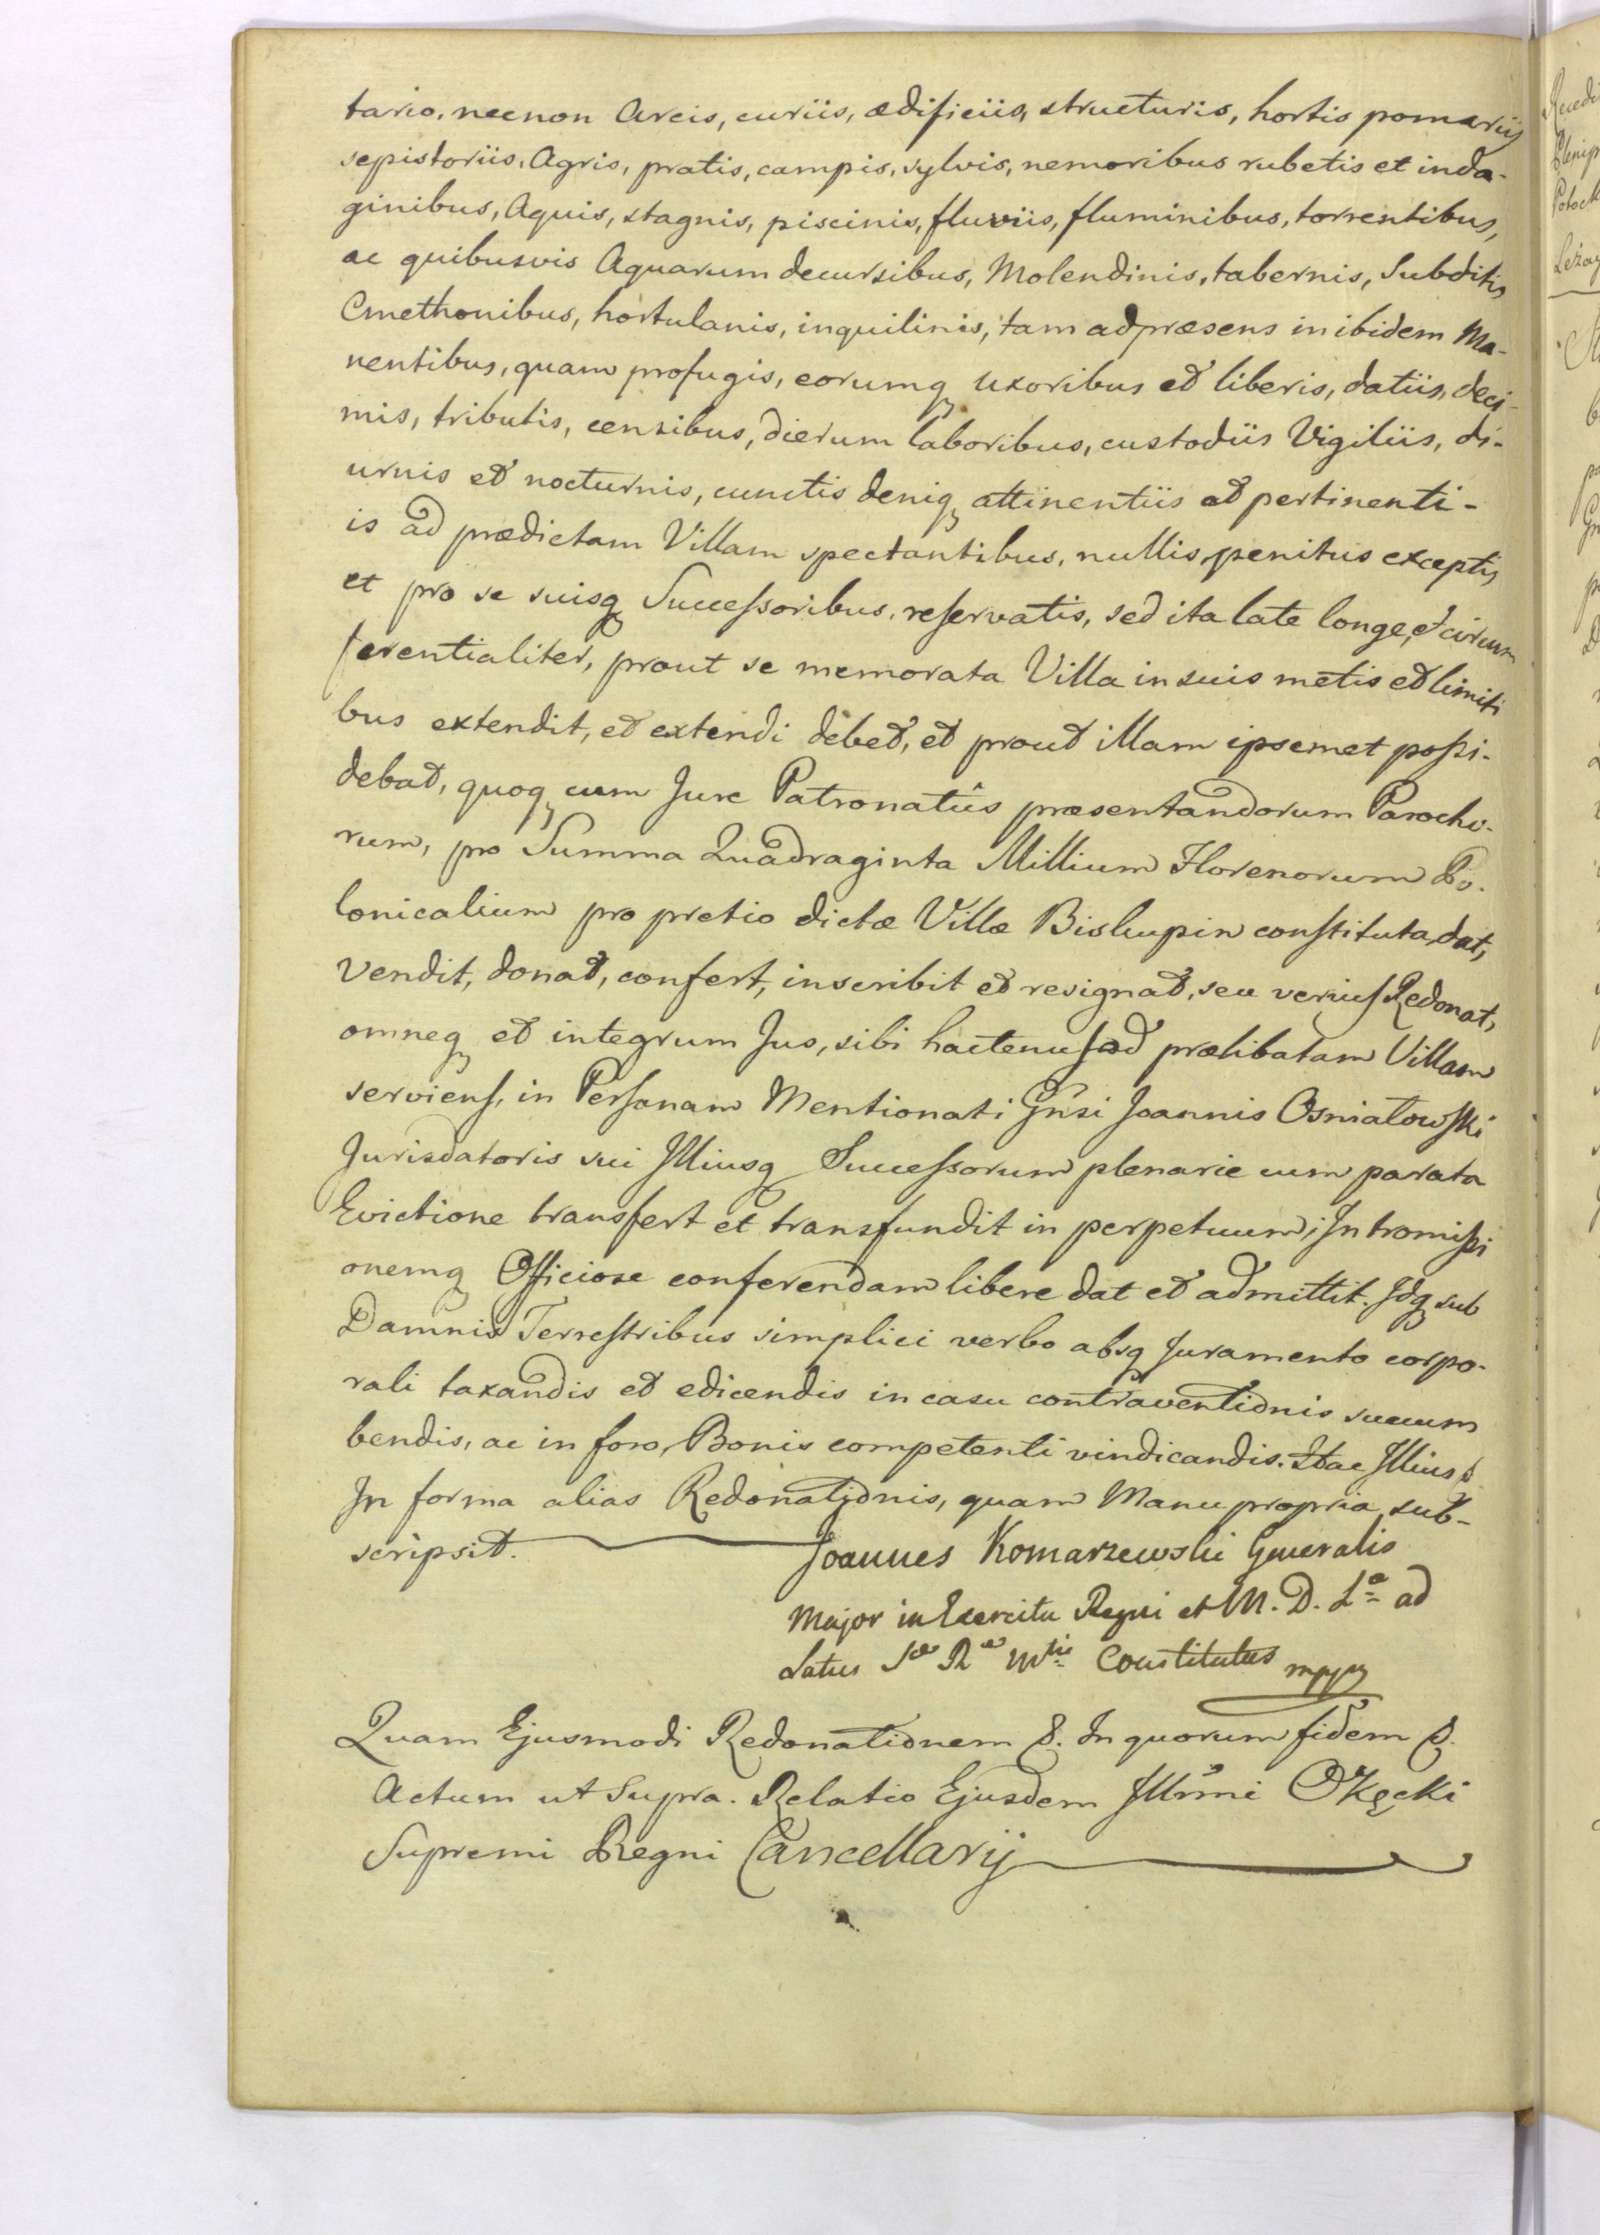 tario, necnon Arcis, curiis, ædificiis, structuris, hortis pomariis
sepistoriis, Agris, pratis, campis, sylvis, nemoribus rubetis et inda-
ginibus, Aquis, stagnis, piscinis, fluviis, fluminibus, torrentibus,
ac quibusvis Aquarum decursibus, Molendinis, tabernis, Subditis
Cmethonibus, hortulanis, inquilinis, tam ad præsens in ibidem Ma-
nentibus, quam profugis, eorumq uxoribus et liberis, datiis, deci-
mis, tributis, censibus, dierum laboribus, custodiis Vigiliis, di-
urnis et nocturnis, cunctis deniq attinentiis et pertinenti-
is ad prædictam Villam spectantibus, nullis penitus exceptis
et pro se suisq Successoribus, reservatis, sed ita late longe, et circum
ferentialiter, prout se memorata Villa in suis metis et limiti
bus extendit, et extendi debet, et prout illam ipsemet possi-
debat, quoq cum Jure Patronatûs præsentandorum Parocho-
rum, pro Summa Quadraginta Millium Florenorum Po-
lonicalium pro pretio dictæ Villæ Biskupin constituta, dat,
Vendit, donat, confert, inscribit et resignat, seu verius Redonat,
omneq et integrum Jus, sibi hactenus ad prælibatam Villam
serviens, in Personam Mentionati Gnsi Joannis Osniałowski
Jurisdatoris sui Illiusq Successorum plenarie cum parata
Evictione transfert et transfundit in perpetuum; Intromissi
onemq Officiose conferendam libere dat et admittit. Idq sub
Damnis Terrestribus simplici verbo absq Juramento corpo-
rali taxandis et edicendis in casu contraventionis succum
bendis, ac in foro, Bonis competenti vindicandis. Hac Illius
In forma alias Redonationis, quam Manu propria sub-
scripsit.
Joannes Komarzewski Generalis
Major in Exercitu Regni et M. D. L^a ad
Latus S^æ R^æ M^tis Constitutus mppq
Quam Ejusmodi Redonationem &. In quorum fidem &.
Actum ut Supra. Relatio Ejusdem Illrmi Okęcki
Supremi Regni Cancellarij